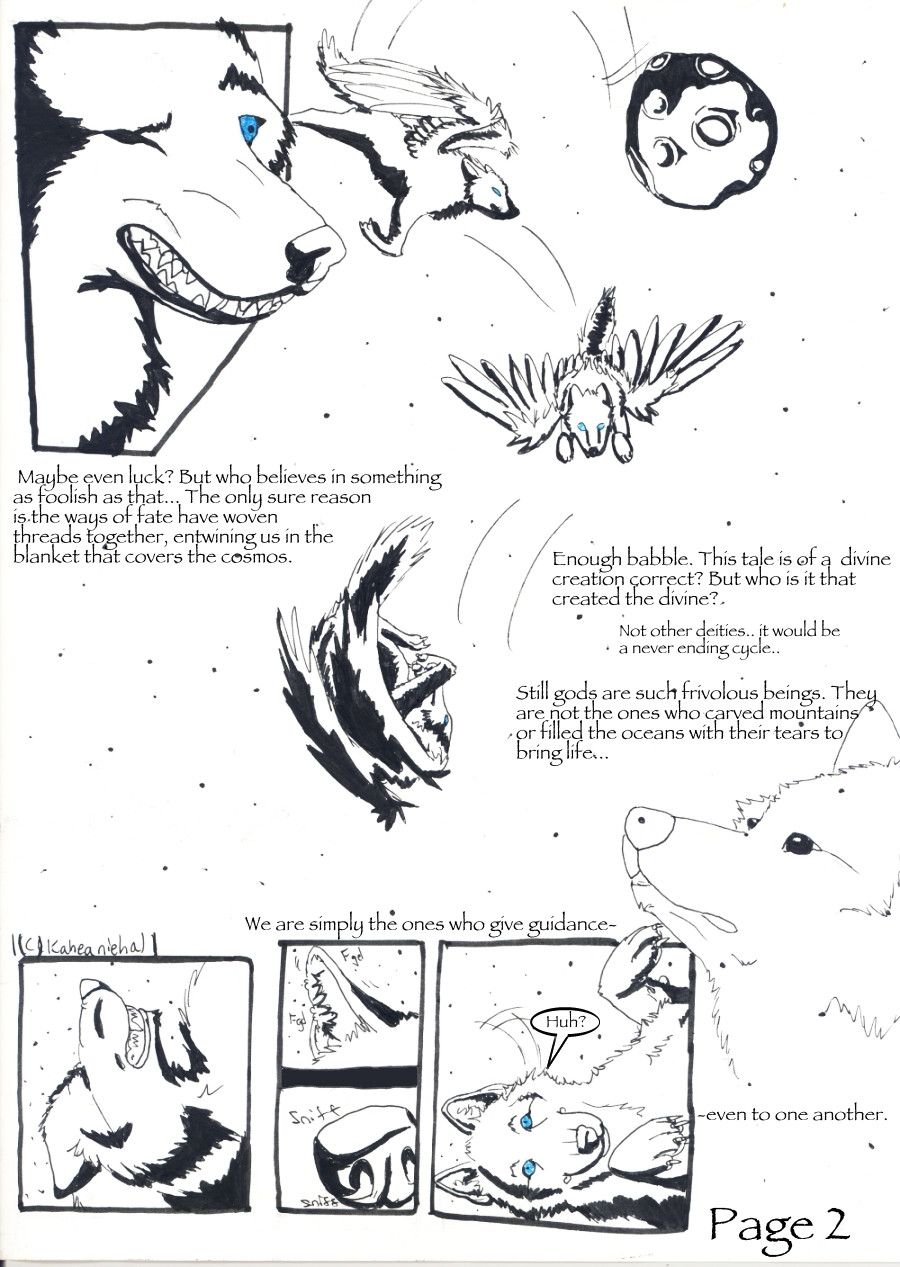 Maybe even luck? But who believes in something
as foolish as that... The only sure reason
is the ways of fate have woven
threads together, entwining us in the
blanket that covers the cosmos.
Enough babble. This tale is of a divine
creation correct? But who is it that
created the divine?
Not other deities.. it would be
a never ending cycle..
Still gods are such frivolous beings. They
are not the ones who carved mountains
or filled the oceans with their tears to
bring life...
We are simply the ones who give guidance-
(C) Kaheanieha
Fgd
Fgd
Sniff
sniff
Huh?
-even to one another.
Page 2